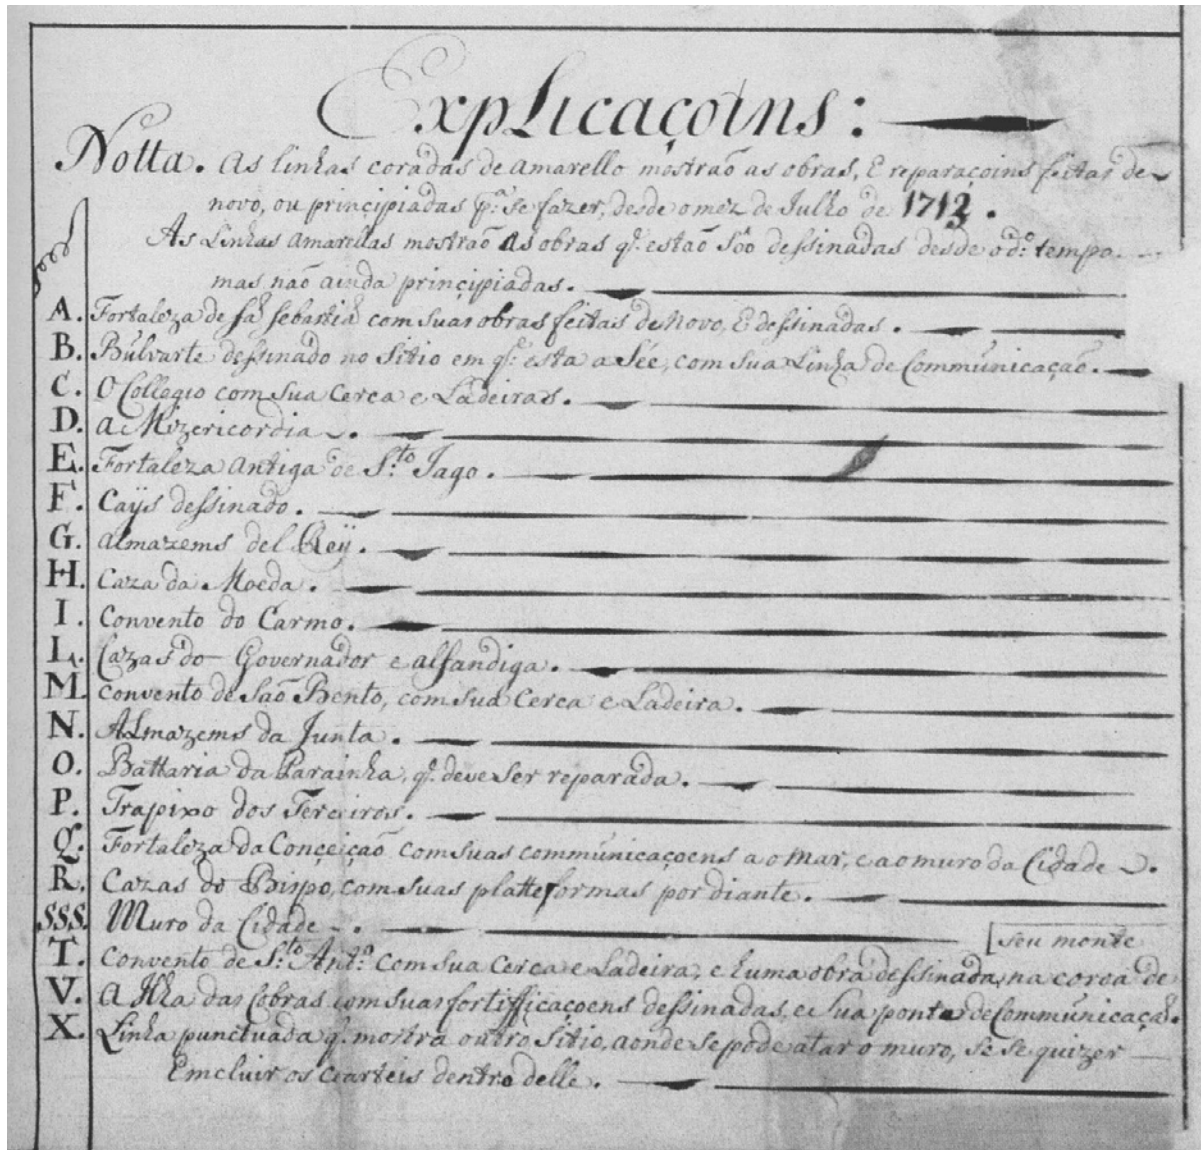 Explicaçoins:
Notta. As linhas coradas de amarello mostraõ as obras, E reparaçoins feitas de
novo, ou principiadas p.ª se fazer, desde o mez de Julho de 1713.
As Linhas amarellas mostraõ as obras q. estaõ sôo dessinadas desde o d.º tempo
mas naõ ainda prinçipiadas.
A. Fortaleza de sã sebastiã com suas obras feitas de Novo, E dessinadas.
B. Bulvarte dessinado no Sitio em q. esta a Sée, com sua Linha de Communicaçaõ.
C. O Collegio com sua Cerca e Ladeiras.
D. a Mizericordia.
E. Fortaleza antiga de S.to Iago.
F. Caÿs dessinado.
G. almazems del Reÿ.
H. Caza da Moeda.
I. Convento do Carmo.
L. Cazas do Governador e alfandiga.
M. convento de Saõ Bento, com sua Cerca e Ladeira.
N. ALmazems da Junta.
O. Battaria da Parainha, q. deve ser reparada.
P. Trapixo dos Terceiros.
Q. Fortaleza da Conçeiçaõ com suas communicaçoens a o mar, e ao muro da Cidade.
R. Cazas do Bispo, com suas platteformas por diante.
SSS. Muro da Cidade.
[seu monte
T. Convento de S.to Ant.º com sua Cerca e Ladeira, e huma obra dessinada na coroa de
V. a Ilha das Cobras com suas fortifficaçoens dessinadas, e sua ponte de Communicaçaã.
X. Linha punctuada q. mostra outro Sitio, aonde se pode atar o muro, se se quizer
Emcluir os Coarteis dentro delle.